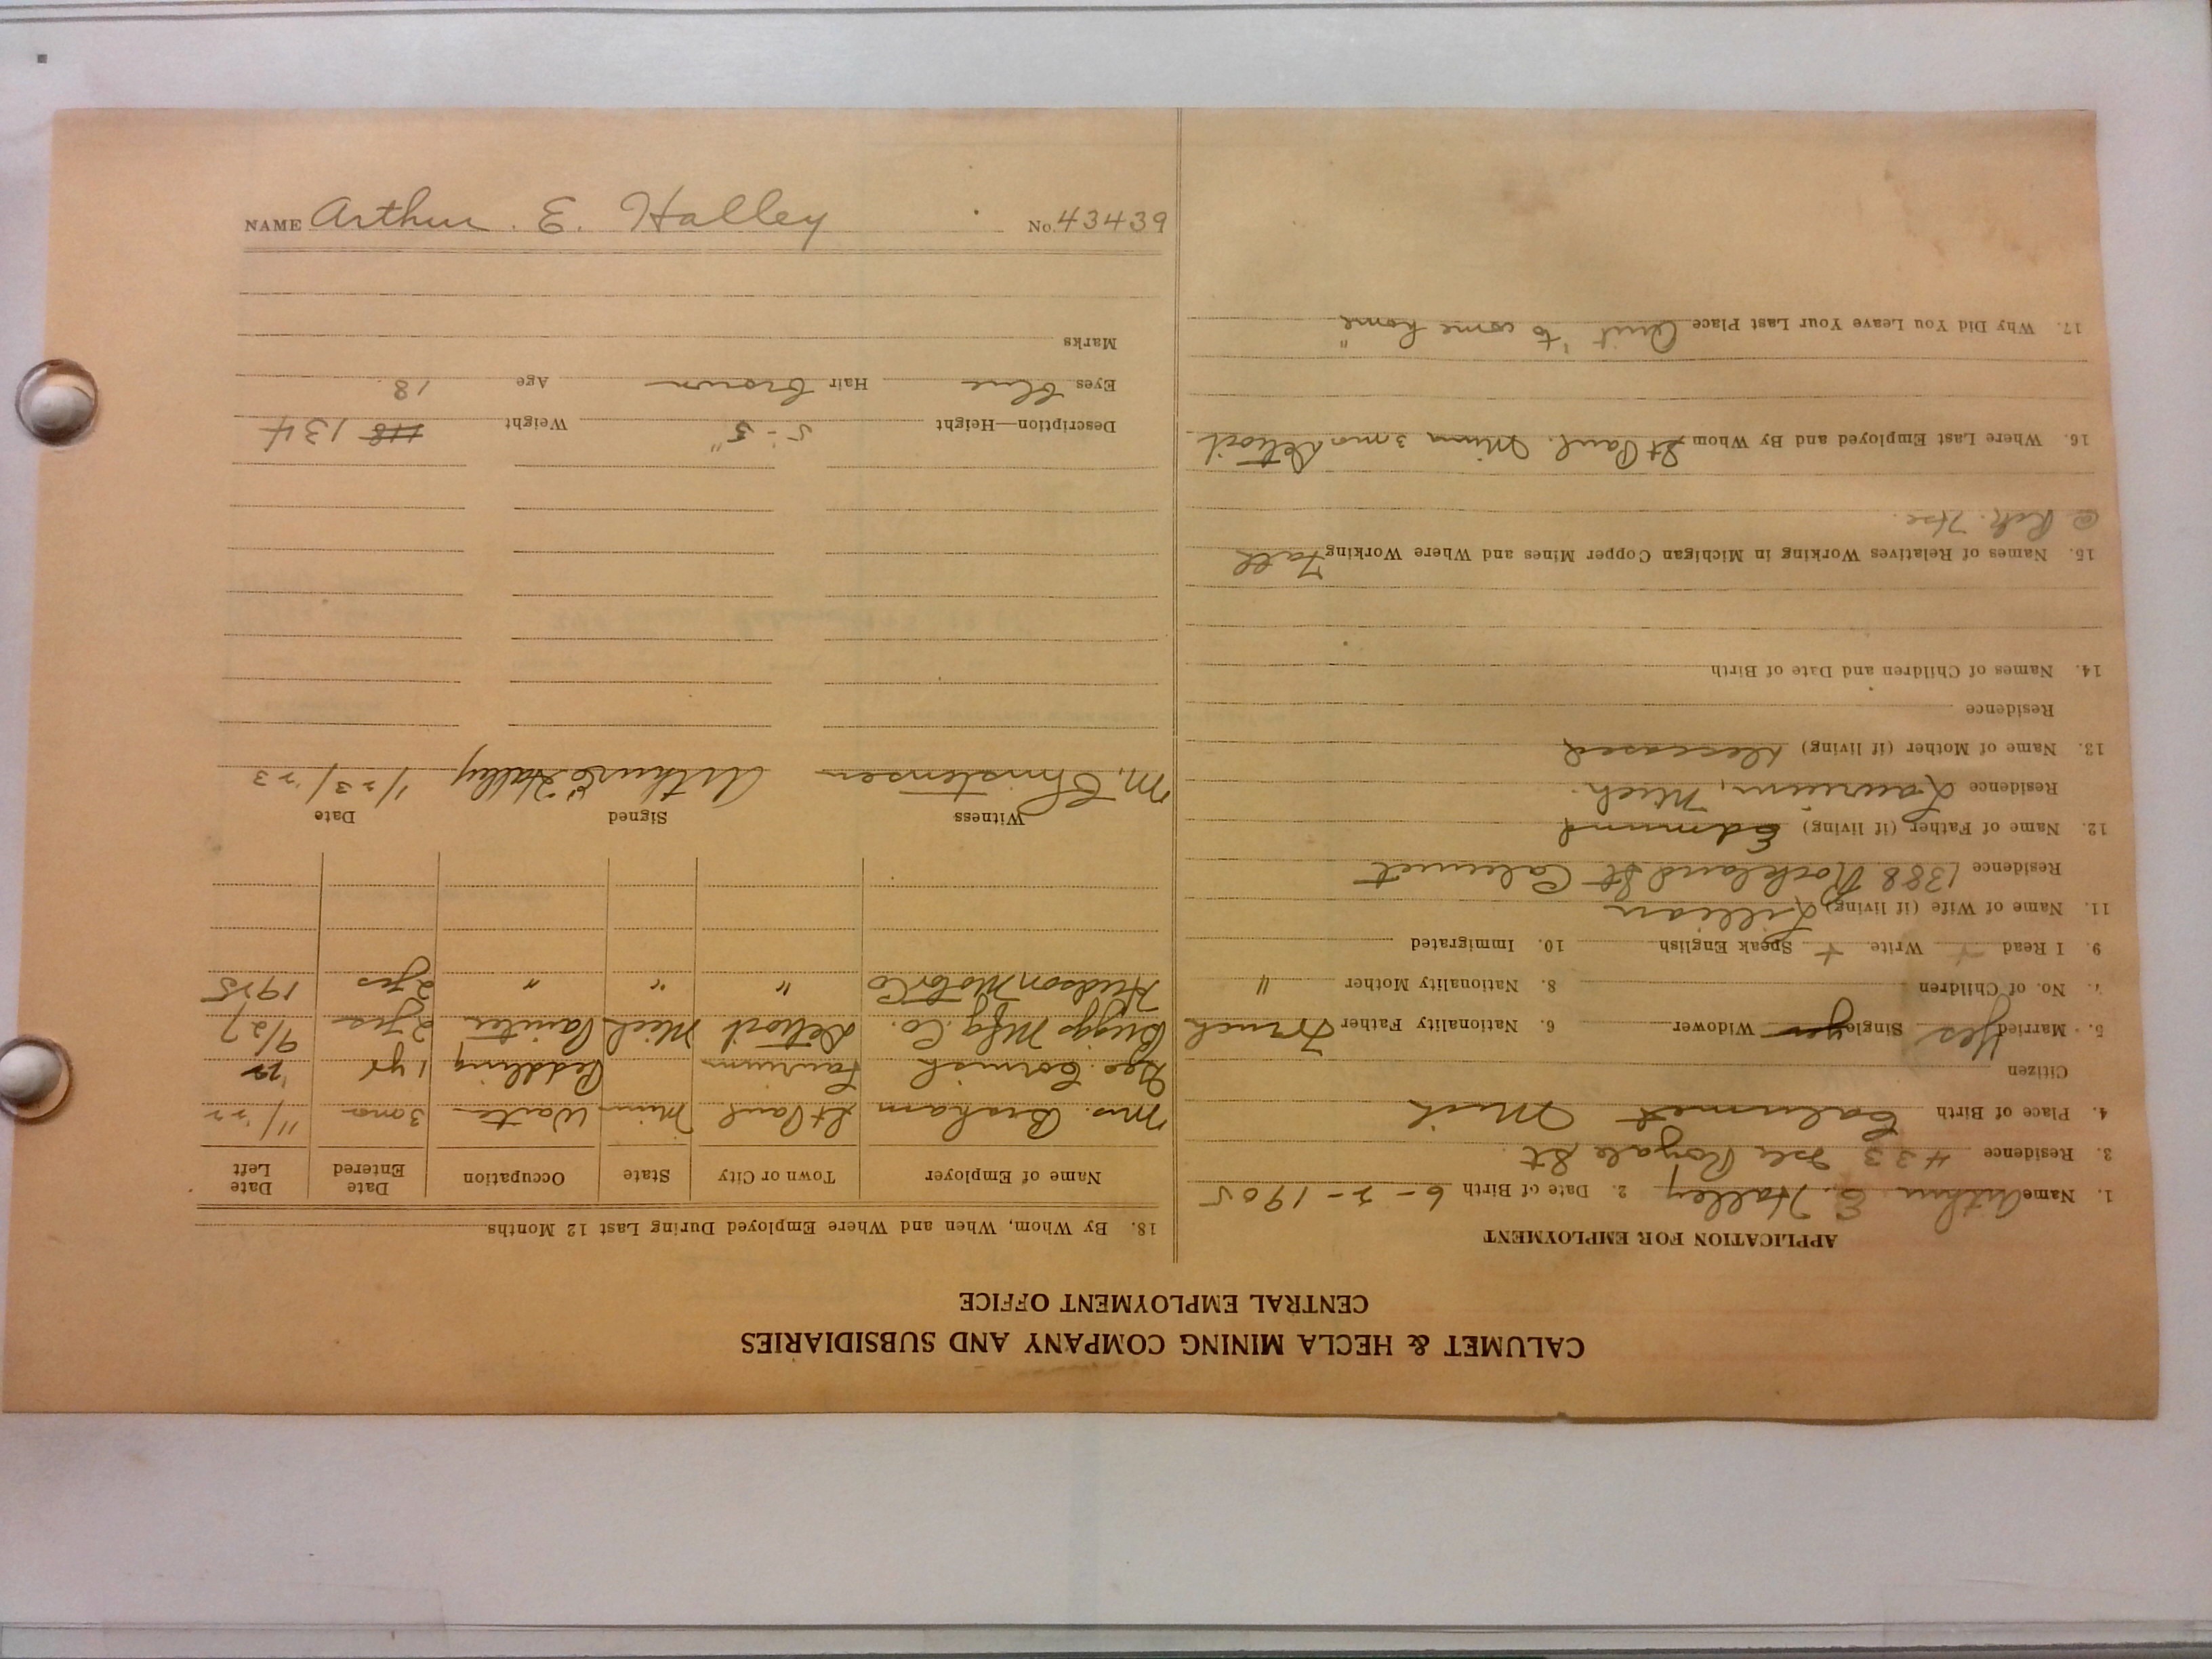 NAME Arthur. E. Halley No. 43439
CALUMET & HECLA MINING COMPANY AND SUBSIDIARIES
CENTRAL EMPLOYMENT OFFICE
APPLICATION FOR EMPLOYMENT
1. Name Arthur E. Halley 2. Date of Birth 6-2-1905
3. Residence 433 Isle Royale St
4. Place of Birth Calumet Mich
Citizen
5. Married Yes Single yes Widower 6. Nationality Father French
7. No. of Children 8. Nationality Mother "
9. I Read + Write + Speak English 10. Immigrated
11. Name of Wife (if living) Lillian
Residence 1388 Rockland St Calumet
12. Name of Father (if living) Edmund
Residence Laurium, Mich.
13. Name of Mother (if living) Deceased
Residence
14. Names of Children and Date of Birth
15. Names of Relatives Working in Michigan Copper Mines and Where Working
16. Where Last Employed and By Whom St Paul. Minn 3 mo Detroit
17. Why Did You Leave Your Last Place Quit "to come home"
18. By Whom, When and Where Employed During Last 12 Months
Name of Employer Town or City State Occupation Date Entered Date Left
Mrs. Braham St Paul. Minn Waiter 3 mo 11/'22
Geo. Cornish Laurium Peddling 1 yr '22
Briggs Mfg. Co. Detroit Mich Painter 2 yrs 9/27
Hudson Motor Co " " " 2 yrs 1925
Witness Signed Date
M. Christensen Arthur E Halley 1/23/'23
Description—Height 5'-5" Weight 118 134
Eyes blue Hair brown Age 18.
Marks